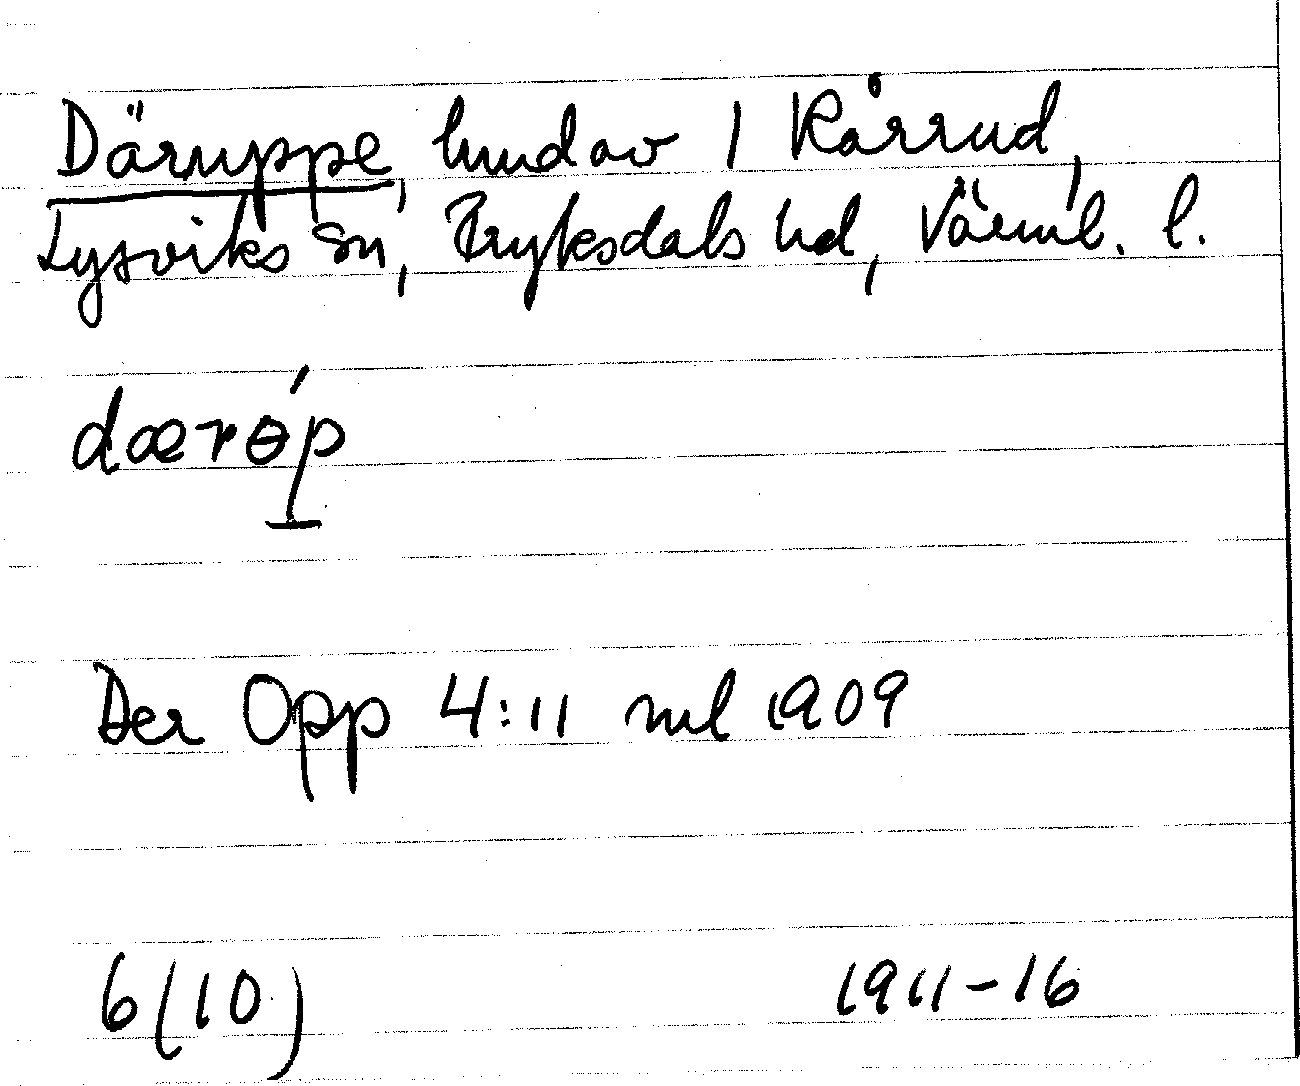 Däruppe, hmd av 1 Kårrud,
Lysviks sn, Fryksdals hd, Värml. l.
dærөp
Der Opp 4:11 ml 1909
6(10) 1911-16